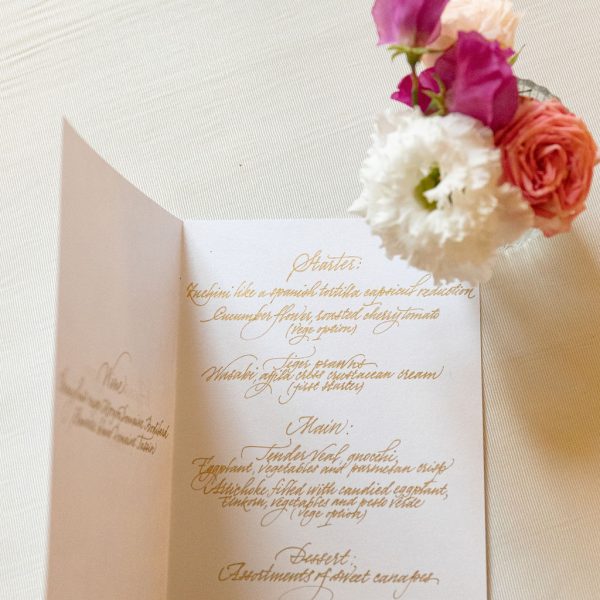 Wine:
Starter:
Zuchini like a spanish tortilla capsicus reduction
Cucumber flower, roasted cherry tomato
(vege option)
Tiger prawns
Wasabi, crustacean cream
(first starter)
Main:
Tender veal, gnocchi,
Eggplant, vegetables and parmesan crisp
Artichoke, filled with candied eggplant,
Einkorn, vegetables and pesto verde
(vege option)
Dessert:
Assortments of sweet canapes